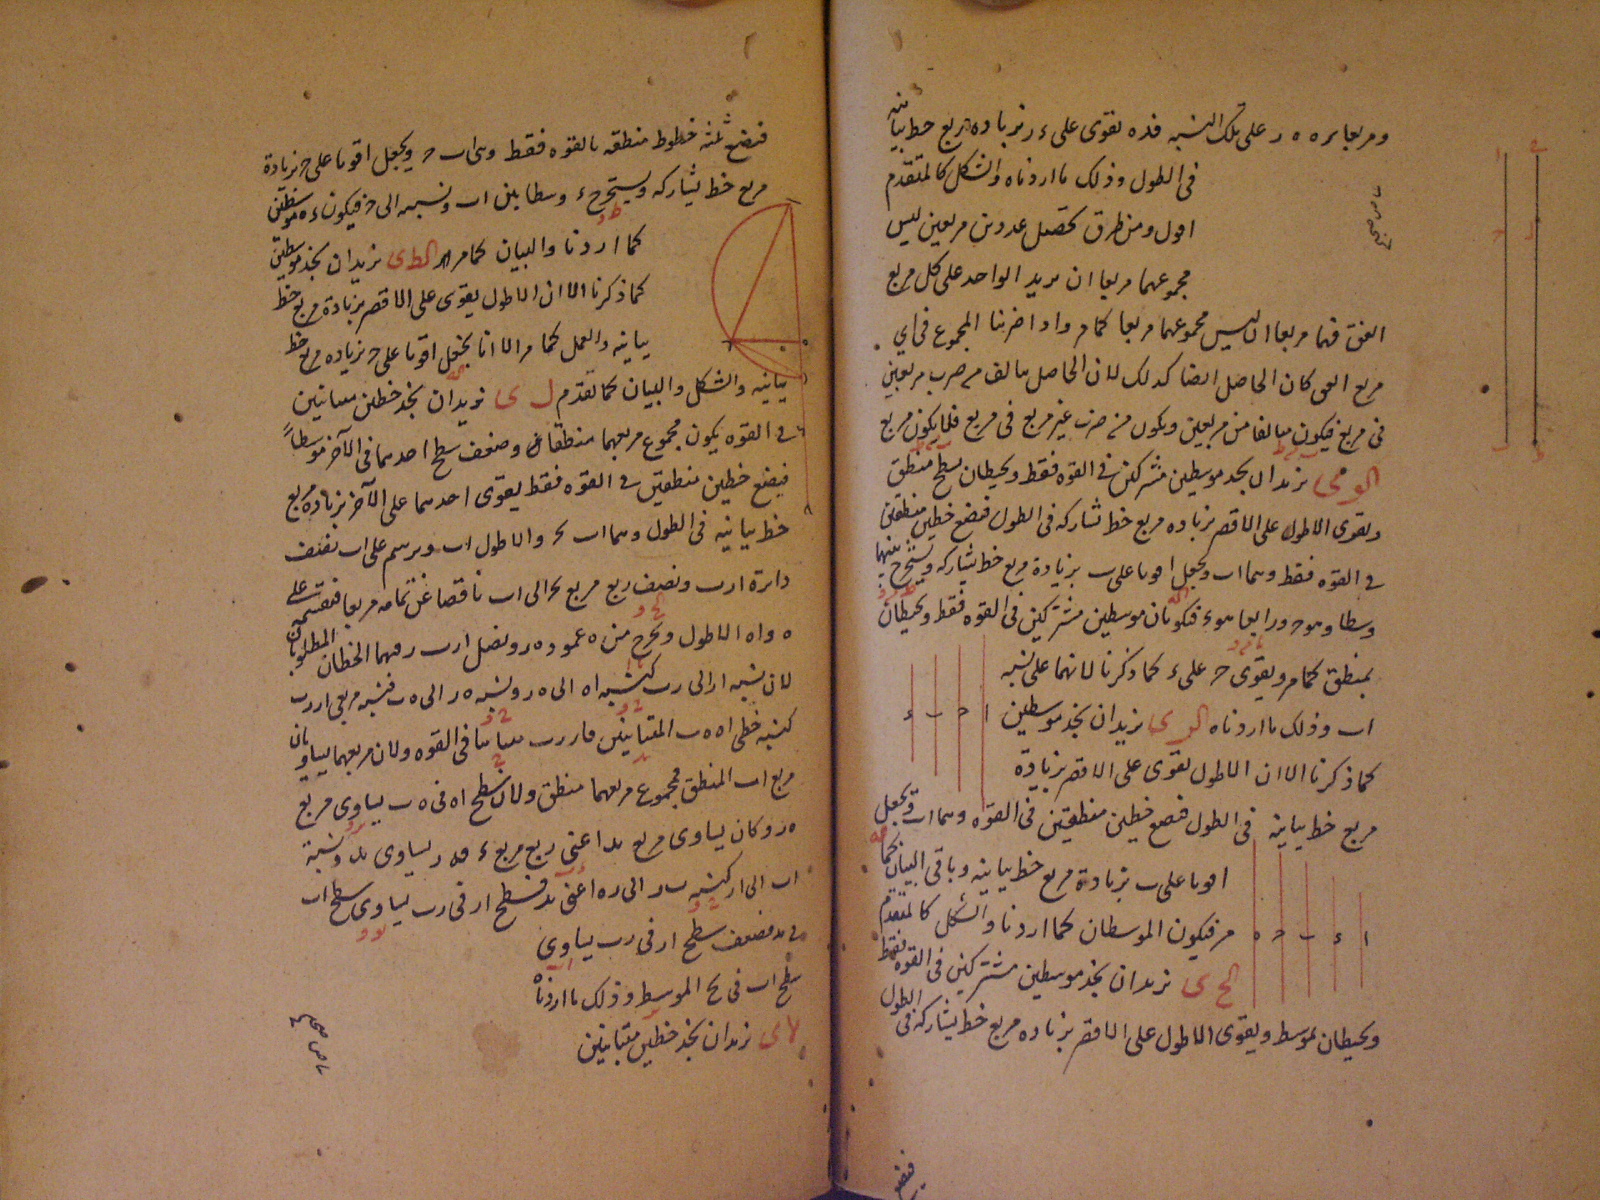 ومربعا ه ه ر على تلك النسبه فده يقوى على ء ر بزياده مربع خط يباينه
فى الطول وذلك ما اردناه والشكل كالمتقدم
اقول ومن طرق تحصيل عددين مربعين ليس
مجموعهما مربعا ان يزيد الواحد على كل مربع
اتفق فهما مربعا ان ليس مجموعهما مربعا كما مر واذا ضربنا المجموع فى اي
مربع اتفق كان الحاصل ايضا كذلك لان الحاصل يتالف من ضرب مربعين
فى مربع فيكون متالفا من مربعين ويكون من ضرب غير مربع فى مربع فلا يكون مربع
الو مى نريد ان نجد موسطين مشتركين فى القوه فقط ويحيطان بسطح منطق
ويقوى الاطول على الاقصر بزياده مربع خط يشاركه فى الطول فنضع خطين منطقين
فى القوه فقط وهما ا ب ونجعل ا قويا على ب بزيادة مربع خط يشاركه ونستخرج بينهما
وسطا وهو ح ورابعا هو ء فيكونان موسطين مشتركين فى القوه فقط ويحيطان
بمنطق كما مر ويقوى ح على ء كما ذكرنا لانهما على نسبه
ا ب وذلك ما اردناه الر ى نريد ان نجد موسطين
كما ذكرنا الا ان الاطول يقوى على الاقصر بزيادة
مربع خط يباينه فى الطول فنضع خطين منطقين فى القوه وهما ا ب ونجعل
ا قويا على ب بزيادة مربع خط يباينه وباقى البيان كما
مر فيكون الموسطان كما اردنا والشكل كالمتقدم
الح ى نريد ان نجد موسطين مشتركين فى القوه فقط
ويحيطان بموسط ويقوى الاطول على الاقصر بزياده مربع خط يشاركه فى الطول
فنضع
فنضع ثلثه خطوط منطقه بالقوه فقط وهى ا ب ح ونجعل ا قويا على ح بزيادة
مربع خط يشاركه ونستخرج ء وسطا بين ا ب ونسبه الى ح فيكون ء ه موسطين
كما اردنا والبيان كما مر الط ى نريد ان نجد موسطين
كما ذكرنا الا ان الاطول يقوى على الاقصر بزيادة مربع خط
يباينه والعمل كما مر الا انا نجعل ا قويا على ح بزياده مربع خط
يباينه والشكل والبيان كما تقدم ل ى نريد ان نجد خطين متباينين
فى القوه يكون مجموع مربعهما منطقا وضعف سطح احدهما فى الآخر موسطاً
فنضع خطين منطقين فى القوه فقط يقوى احدهما على الآخر بزياده مربع
خط يباينه فى الطول وهما ا ب ب ح والاطول ا ب ونرسم على ا ب نصف
دائرة ا ر ب ونضيف ربع مربع ب ح الى ا ب ناقصا عن تمامه مربعا فتقسم على
ه و ا ه الاطول ونخرج من ه عمود ه ر ونصل ا ر ب ر فهما الخطان المطلوبان
لان نسبه ا ر الى ر ب كنسبه ا ه الى ه ر ونسبه ه ر الى ه ب فنسبه مربعى ا ر ر ب
كنسبه خطى ا ه ه ب المتباينين فا ر ر ب متباينا فى القوه ولان مربعهما يساويان
مربع ا ب المنطق فمجموع مربعهما منطق ولان سطح ا ه فى ه ب يساوى مربع
ه ر وكان يساوى مربع ب د اعنى ربع مربع ب ح فه ر يساوى ب د ونسبة
ا ب الى ا ر كنسبه ب ر الى ر ه اعنى ب د فسطح ا ر فى ر ب يساوى سطح ا ب
فى ب د فضعف سطح ا ر فى ر ب يساوى
سطح ا ب فى ب ح الموسط وذلك ما اردناه
لا ى نريد ان نجد خطين متباينين